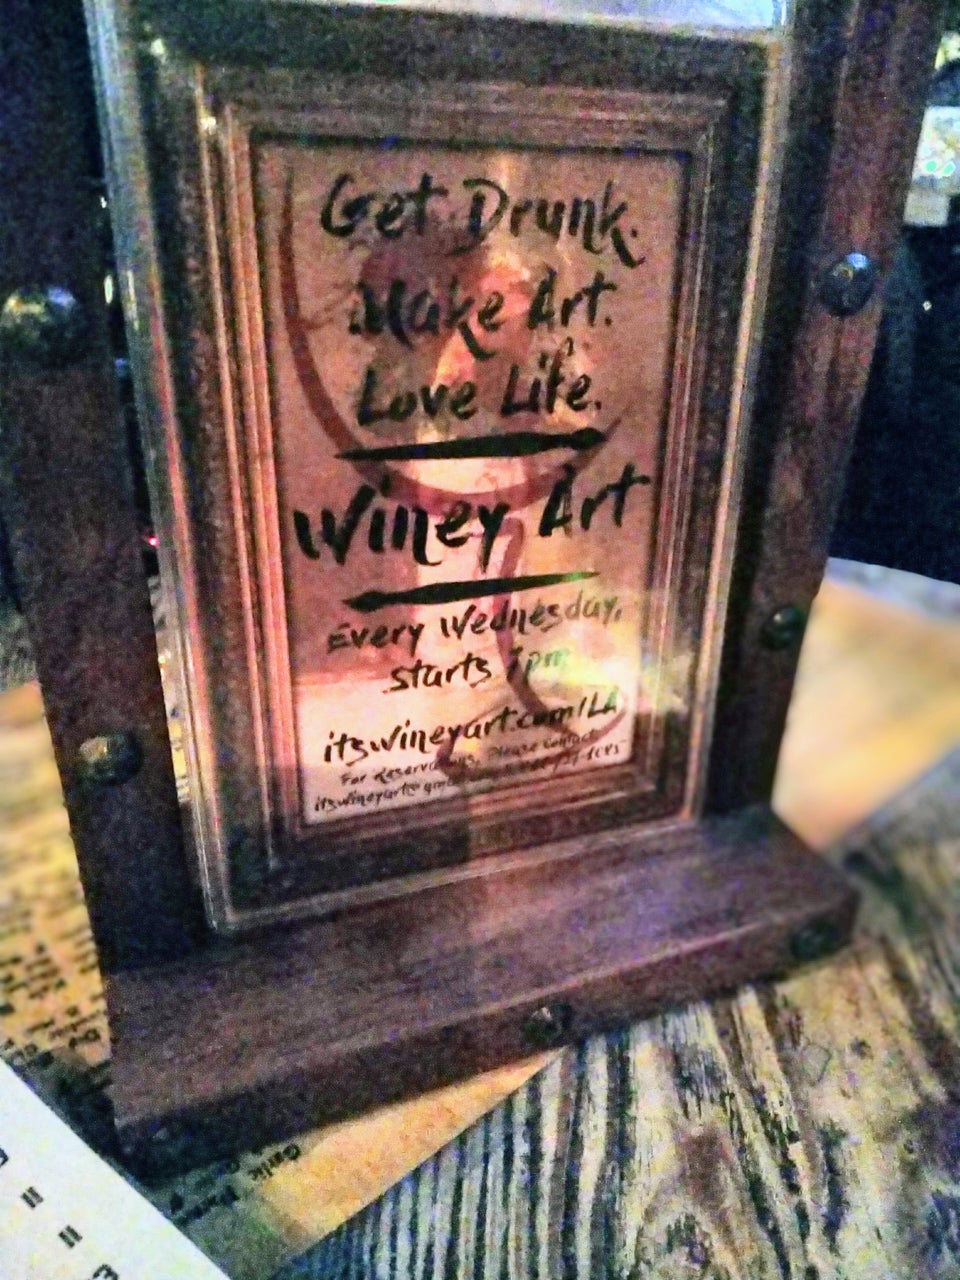 Get Drunk.
Make Art.
Love Life.
Winey Art
Every Wednesday,
starts 7pm
itswineyart.com/LA
For Reservations, Please Contact
itswineyart@
Garlic